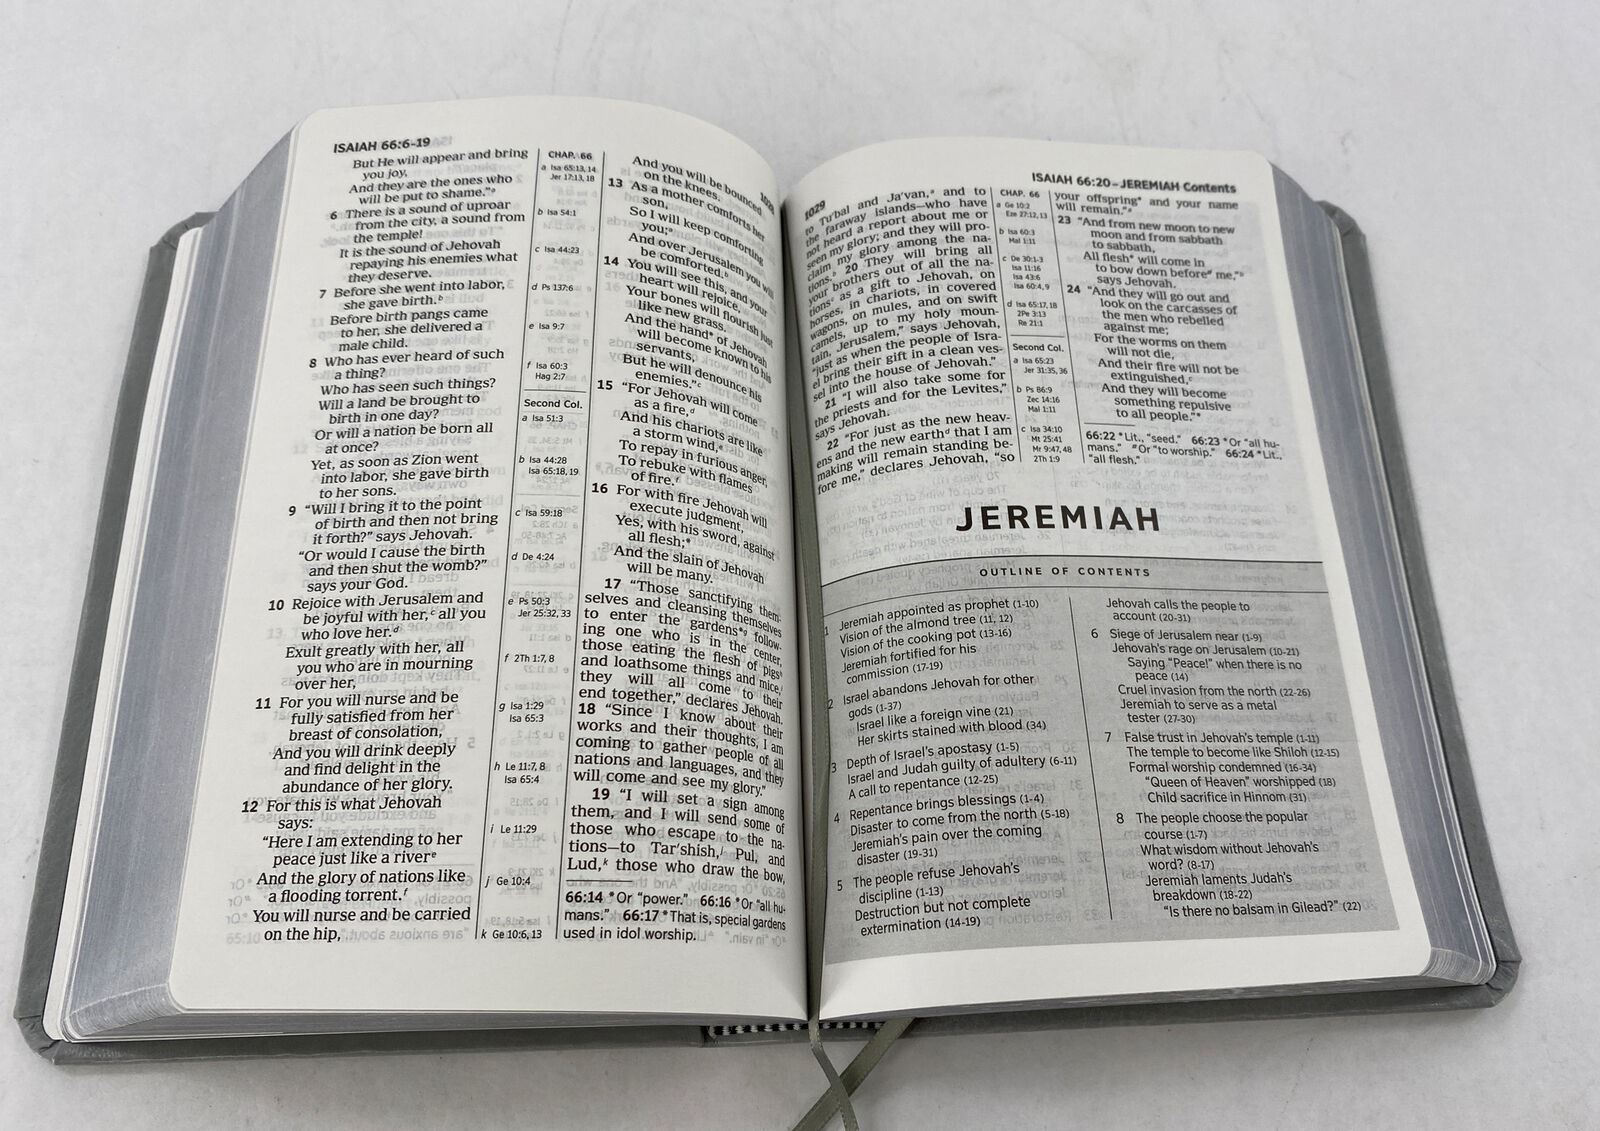 ISAIAH 66:6-19
But He will appear and bring
you joy,
And they are the ones who
will be put to shame."ᵃ
6 There is a sound of uproar
from the city, a sound from
the temple!
It is the sound of Jehovah
repaying his enemies what
they deserve.
7 Before she went into labor,
she gave birth.ᵇ
Before birth pangs came
to her, she delivered a
male child.
8 Who has ever heard of such
a thing?
Who has seen such things?
Will a land be brought to
birth in one day?
Or will a nation be born all
at once?
Yet, as soon as Zion went
into labor, she gave birth
to her sons.
9 "Will I bring it to the point
of birth and then not bring
it forth?" says Jehovah.
"Or would I cause the birth
and then shut the womb?"
says your God.
10 Rejoice with Jerusalem and
be joyful with her,ᶜ all you
who love her.ᵈ
Exult greatly with her, all
you who are in mourning
over her,
11 For you will nurse and be
fully satisfied from her
breast of consolation,
And you will drink deeply
and find delight in the
abundance of her glory.
12 For this is what Jehovah
says:
"Here I am extending to her
peace just like a riverᵉ
And the glory of nations like
a flooding torrent.ᶠ
You will nurse and be carried
on the hip,
CHAP. 66
a Isa 65:13, 14
Jer 17:13, 18
b Isa 54:1
c Isa 44:23
d Ps 137:6
e Isa 9:7
f Isa 60:3
Hag 2:7
Second Col.
a Isa 51:3
b Isa 44:28
Isa 65:18, 19
c Isa 59:18
d De 4:24
e Ps 50:3
Jer 25:32, 33
f 2Th 1:7, 8
g Isa 1:29
Isa 65:3
h Le 11:7, 8
Isa 65:4
i Le 11:29
j Ge 10:4
k Ge 10:6, 13
And you will be bounced
on the knees.
13 As a mother comforts her
son,
So I will keep comforting
you;ᵃ
And over Jerusalem you will
be comforted.ᵇ
14 You will see this, and your
heart will rejoice,
Your bones will flourish just
like new grass.
And the hand* of Jehovah
will become known to his
servants,
But he will denounce his
enemies."ᶜ
15 "For Jehovah will come
as a fire,ᵈ
And his chariots are like
a storm wind,ᵉ
To repay in furious anger,
To rebuke with flames
of fire.ᶠ
16 For with fire Jehovah will
execute judgment,
Yes, with his sword, against
all flesh;*
And the slain of Jehovah
will be many.
17 "Those sanctifying them-
selves and cleansing themselves
to enter the gardens*ᵍ follow-
ing one who is in the center,
those eating the flesh of pigsʰ
and loathsome things and mice,ⁱ
they will all come to their
end together," declares Jehovah.
18 "Since I know about their
works and their thoughts, I am
coming to gather people of all
nations and languages, and they
will come and see my glory."
19 "I will set a sign among
them, and I will send some of
those who escape to the na-
tions—to Tar′shish,ʲ Pul, and
Lud,ᵏ those who draw the bow,
66:14 *Or "power." 66:16 *Or "all hu-
mans." 66:17 *That is, special gardens
used in idol worship.
1029
ISAIAH 66:20–JEREMIAH Contents
to Tu′bal and Ja′van,ᵃ and to
the faraway islands—who have
not heard a report about me or
seen my glory; and they will pro-
claim my glory among the na-
tions.ᵇ 20 They will bring all
your brothers out of all the na-
tionsᶜ as a gift to Jehovah, on
horses, in chariots, in covered
wagons, on mules, and on swift
camels, up to my holy moun-
tain, Jerusalem," says Jehovah,
"just as when the people of Isra-
el bring their gift in a clean ves-
sel into the house of Jehovah."
21 "I will also take some for
the priests and for the Levites,"
says Jehovah.
22 "For just as the new heav-
ens and the new earthᵈ that I am
making will remain standing be-
fore me," declares Jehovah, "so
CHAP. 66
a Ge 10:2
Eze 27:12, 13
b Isa 60:3
Mal 1:11
c De 30:1-3
Isa 11:16
Isa 43:6
Isa 60:4, 9
d Isa 65:17, 18
2Pe 3:13
Re 21:1
Second Col.
a Isa 65:23
Jer 31:35, 36
b Ps 86:9
Zec 14:16
Mal 1:11
c Isa 34:10
Mt 25:41
Mr 9:47, 48
2Th 1:9
your offspring* and your name
will remain."ᵃ
23 "And from new moon to new
moon and from sabbath
to sabbath,
All flesh* will come in
to bow down before* me,"ᵇ
says Jehovah.
24 "And they will go out and
look on the carcasses of
the men who rebelled
against me;
For the worms on them
will not die,
And their fire will not be
extinguished,ᶜ
And they will become
something repulsive
to all people."*
66:22 *Lit., "seed." 66:23 *Or "all hu-
mans." *Or "to worship." 66:24 *Lit.,
"all flesh."
JEREMIAH
OUTLINE OF CONTENTS
1 Jeremiah appointed as prophet (1-10)
Vision of the almond tree (11, 12)
Vision of the cooking pot (13-16)
Jeremiah fortified for his
commission (17-19)
2 Israel abandons Jehovah for other
gods (1-37)
Israel like a foreign vine (21)
Her skirts stained with blood (34)
3 Depth of Israel's apostasy (1-5)
Israel and Judah guilty of adultery (6-11)
A call to repentance (12-25)
4 Repentance brings blessings (1-4)
Disaster to come from the north (5-18)
Jeremiah's pain over the coming
disaster (19-31)
5 The people refuse Jehovah's
discipline (1-13)
Destruction but not complete
extermination (14-19)
Jehovah calls the people to
account (20-31)
6 Siege of Jerusalem near (1-9)
Jehovah's rage on Jerusalem (10-21)
Saying "Peace!" when there is no
peace (14)
Cruel invasion from the north (22-26)
Jeremiah to serve as a metal
tester (27-30)
7 False trust in Jehovah's temple (1-11)
The temple to become like Shiloh (12-15)
Formal worship condemned (16-34)
"Queen of Heaven" worshipped (18)
Child sacrifice in Hinnom (31)
8 The people choose the popular
course (1-7)
What wisdom without Jehovah's
word? (8-17)
Jeremiah laments Judah's
breakdown (18-22)
"Is there no balsam in Gilead?" (22)